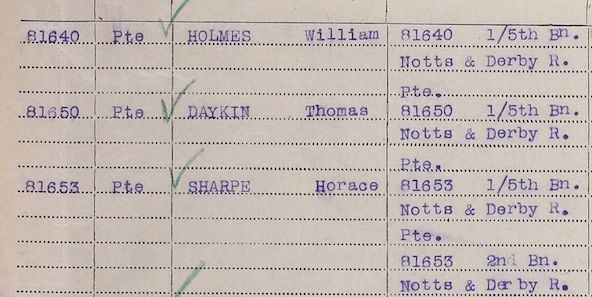 81640 Pte HOLMES William 81640 1/5th Bn.
Notts & Derby R.
Pte.
81650 Pte DAYKIN Thomas 81650 1/5th Bn.
Notts & Derby R.
Pte.
81653 Pte SHARPE Horace 81653 1/5th Bn.
Notts & Derby R.
Pte.
81653 2nd Bn.
Notts & Derby R.